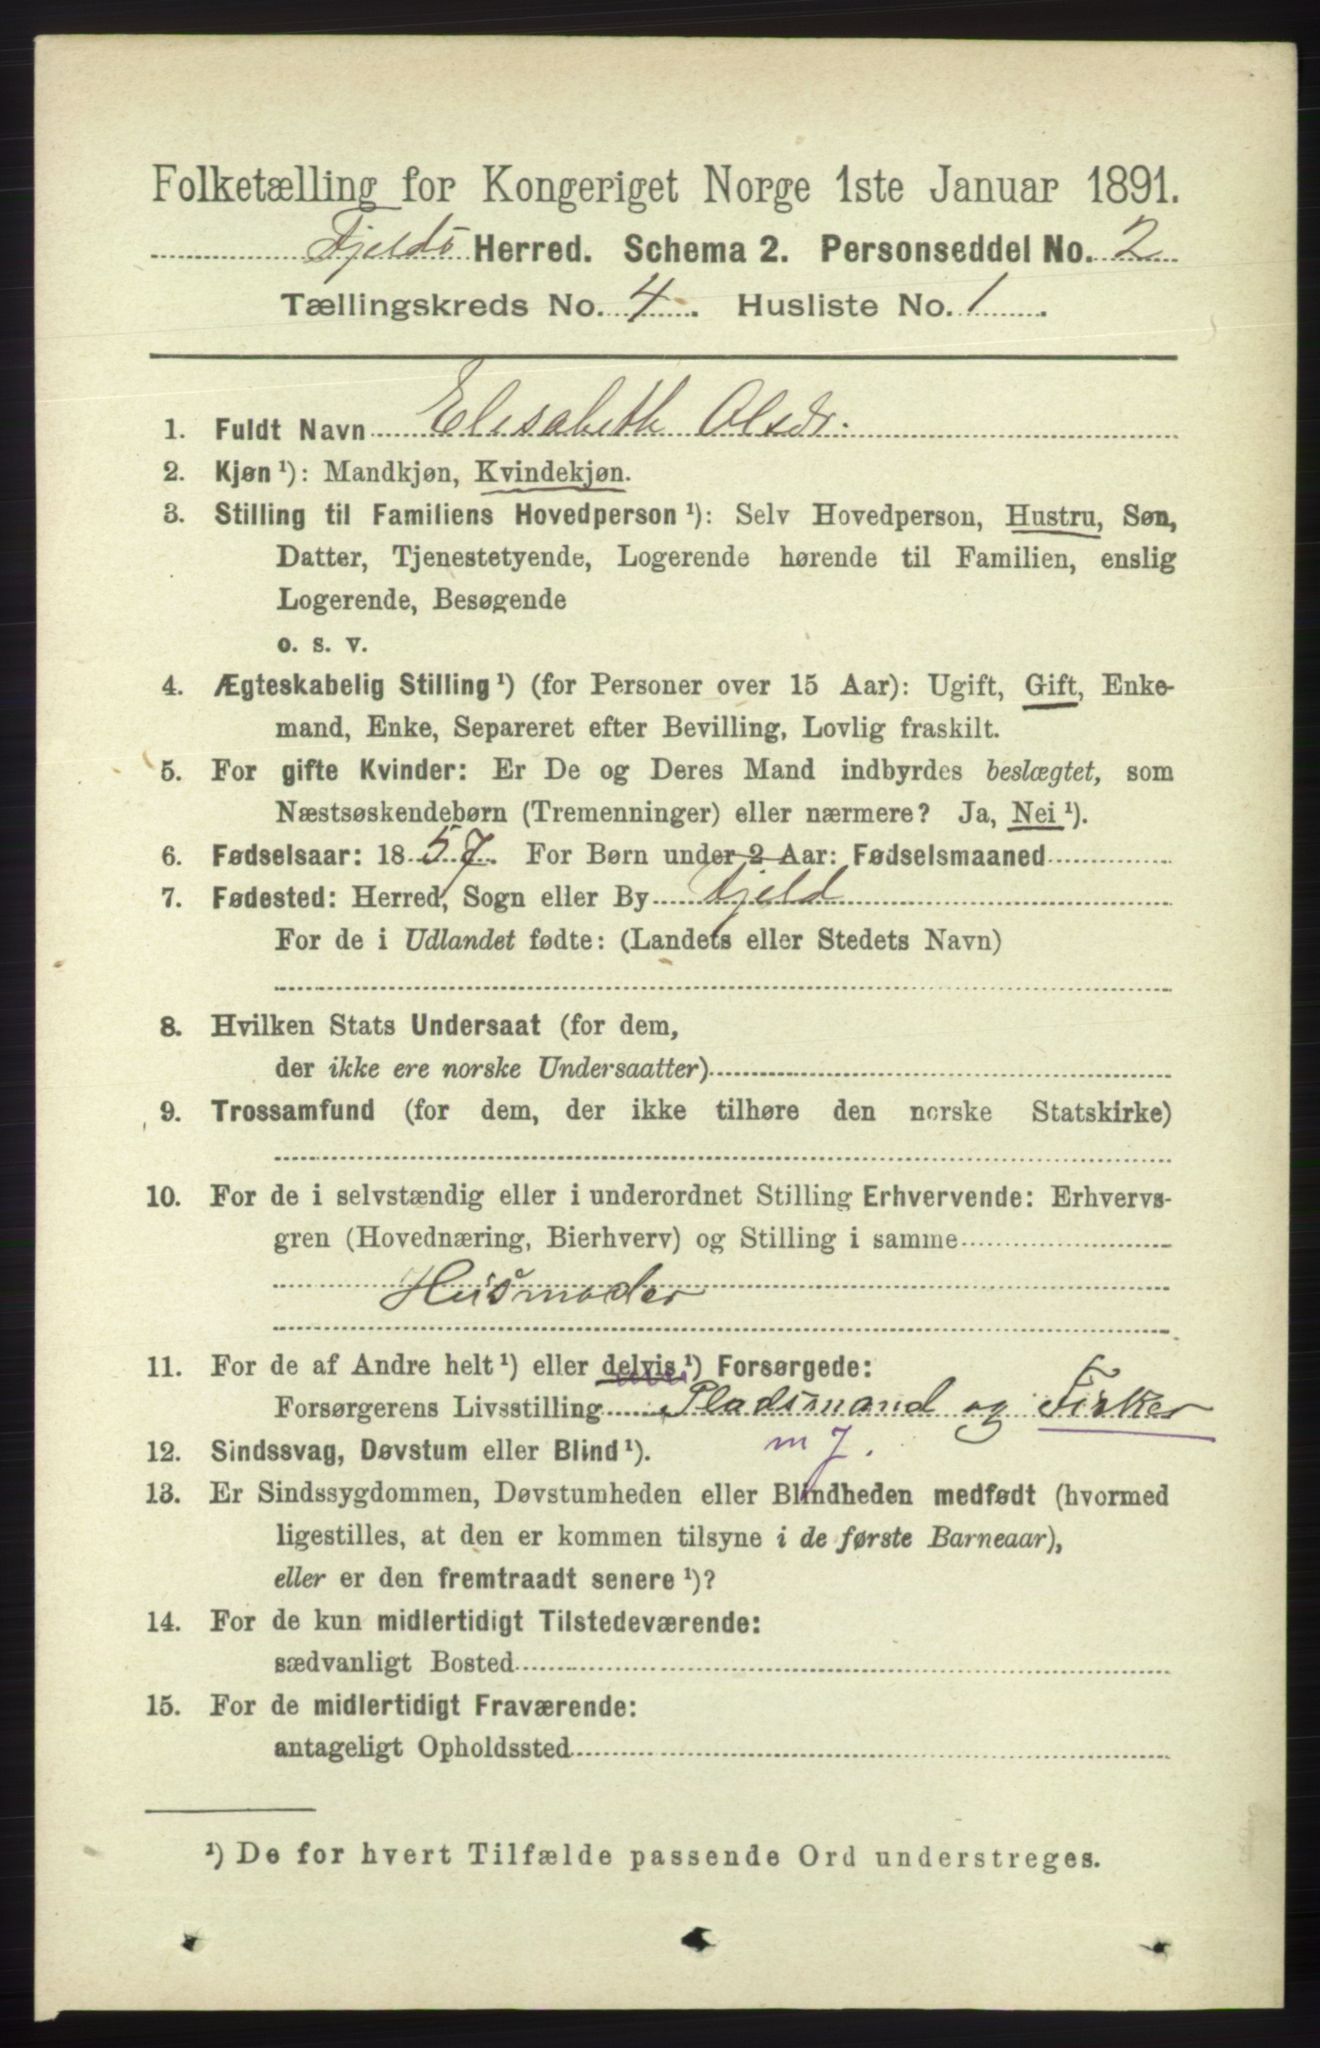 Folketælling for Kongeriget Norge 1ste Januar 1891.
Fjelds Herred. Schema 2. Personseddel No. 2
Tællingskreds No. 4. Husliste No. 1.
1. Fuldt Navn Elisabeth Olsdr.
2. Kjøn ¹): Mandkjøn, Kvindekjøn.
3. Stilling til Familiens Hovedperson ¹): Selv Hovedperson, Hustru, Søn,
Datter, Tjenestetyende, Logerende hørende til Familien, enslig
Logerende, Besøgende
o. s. v.
4. Ægteskabelig Stilling ¹) (for Personer over 15 Aar): Ugift, Gift, Enke-
mand, Enke, Separeret efter Bevilling, Lovlig fraskilt.
5. For gifte Kvinder: Er De og Deres Mand indbyrdes beslægtet, som
Næstsøskendebørn (Tremenninger) eller nærmere? Ja, Nei ¹).
6. Fødselsaar: 1857. For Børn under 2 Aar: Fødselsmaaned
7. Fødested: Herred, Sogn eller By Fjeld
For de i Udlandet fødte: (Landets eller Stedets Navn)
8. Hvilken Stats Undersaat (for dem,
der ikke ere norske Undersaatter)
9. Trossamfund (for dem, der ikke tilhøre den norske Statskirke)
10. For de i selvstændig eller i underordnet Stilling Erhvervende: Erhvervs-
gren (Hovednæring, Bierhverv) og Stilling i samme
Husmoder
11. For de af Andre helt ¹) eller delvis ¹) Forsørgede:
Forsørgerens Livsstilling Pladsmand og Fisker
m J.
12. Sindssvag, Døvstum eller Blind ¹).
13. Er Sindssygdommen, Døvstumheden eller Blindheden medfødt (hvormed
ligestilles, at den er kommen tilsyne i de første Barneaar),
eller er den fremtraadt senere ¹)?
14. For de kun midlertidigt Tilstedeværende:
sædvanligt Bosted
15. For de midlertidigt Fraværende:
antageligt Opholdssted
¹) De for hvert Tilfælde passende Ord understreges.